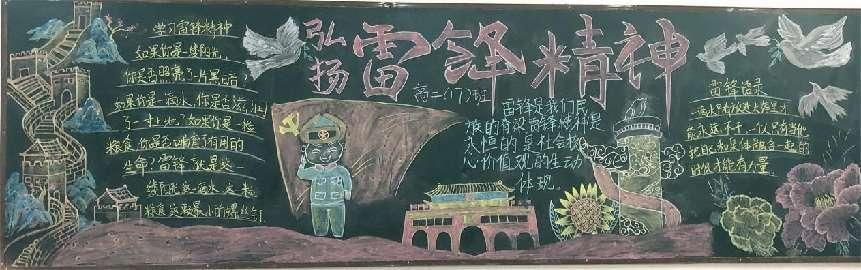 学习雷锋精神
如果你是一缕阳光，
你是否照亮了一片黑暗？
如果你是一滴水，你是否滋润
了一寸土地？如果你是一粒
粮食，你是否哺育了有用的
生命？雷锋就是这一
缕阳光这一滴水这一粒
粮食这颗最小的螺丝钉
弘扬
雷锋精神
高二(17)班
雷锋是我们民
族的脊梁雷锋精神是
永恒的是社会核
心价值观的生动
体现。
雷锋语录
一滴水只有放进大海里才
能永远不干，一个人只有当他
把自己和集体融合一起的
时候才能有力量。